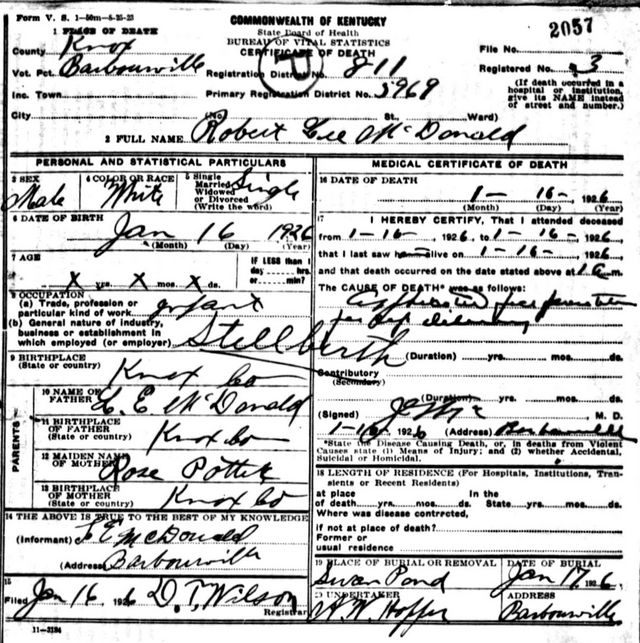 Form V. S. 1—50m—8-25-23
COMMONWEALTH OF KENTUCKY
2057
1 PLACE OF DEATH
State Board of Health
BUREAU OF VITAL STATISTICS
File No.
County Knox
CERTIFICATE OF DEATH
Vot. Pct. Barbourville
Registration District No. 811
Registered No. 3
Inc. Town
Primary Registration District No. 5969
(If death occurred in a hospital or institution, give its NAME instead of street and number.)
City (No. St. Ward)
2 FULL NAME Robert Lee McDonald
PERSONAL AND STATISTICAL PARTICULARS
3 SEX Male
4 COLOR OR RACE White
5 Single Married Widowed or Divorced (Write the word) Single
6 DATE OF BIRTH
Jan 16 1926
(Month) (Day) (Year)
7 AGE
x yrs. x mos. x ds.
IF LESS than 1 day hrs. or min.?
8 OCCUPATION
(a) Trade, profession or particular kind of work infant
(b) General nature of industry, business or establishment in which employed (or employer)
Stillbirth
9 BIRTHPLACE
(State or country) Knox Co
PARENTS
10 NAME OF FATHER E McDonald
11 BIRTHPLACE OF FATHER
(State or country) Knox Co
12 MAIDEN NAME OF MOTHER Rose Potter
13 BIRTHPLACE OF MOTHER
(State or country) Knox Co
14 THE ABOVE IS TRUE TO THE BEST OF MY KNOWLEDGE
(Informant) E McDonald
(Address) Barbourville
15
Filed Jan 16 1926 D. T. Wilson
Registrar
11—3184
MEDICAL CERTIFICATE OF DEATH
16 DATE OF DEATH
1 - 16 - 1926
(Month) (Day) (Year)
17 I HEREBY CERTIFY, That I attended deceased
from 1-16-, 1926, to 1-16-, 1926
that I last saw h alive on 1-16-, 1926
and that death occurred on the date stated above at m.
The CAUSE OF DEATH* was as follows:
(Duration) yrs. mos. ds.
Contributory
(Secondary)
(Duration) yrs. mos. ds.
(Signed) M. D.
1-16 1926 (Address) Barbourville
*State the Disease Causing Death, or, in deaths from Violent Causes state (1) Means of Injury; and (2) whether Accidental, Suicidal or Homicidal.
18 LENGTH OF RESIDENCE (For Hospitals, Institutions, Transients or Recent Residents)
at place of death yrs. mos. ds. In the State yrs. mos. ds.
Where was disease contrrcted,
if not at place of death?
Former or
usual residence
19 PLACE OF BURIAL OR REMOVAL
Swan Pond
DATE OF BURIAL
Jan 17 1926
20 UNDERTAKER
ADDRESS
Barbourville